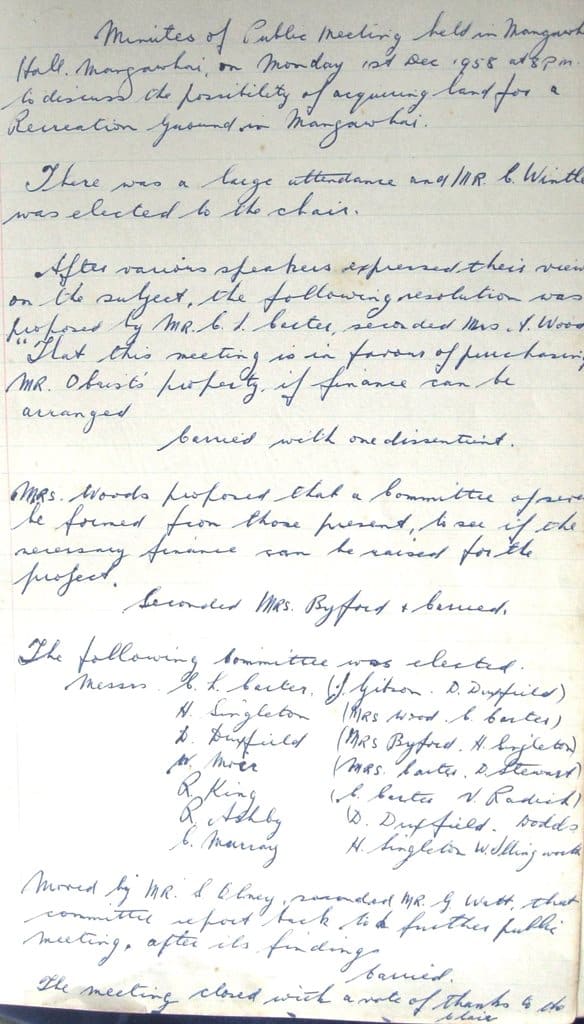 Minutes of Public Meeting held in Mangawh
Hall. Mangawhai, on Monday 1st Dec 1958 at 8 P.m.
to discuss the possibility of acquiring land for a
Recreation Ground in Mangawhai.
There was a large attendance and MR. C. Wintle
was elected to the chair.
After various speakers expressed their view
on the subject, the following resolution was
proposed by MR. C. L. Carter, seconded Mrs. Wood
"That this meeting is in favour of purchasing
MR. Obrist's property, if finance can be
arranged
Carried with one dissentient.
MRS. Woods proposed that a Committee of seve
be formed from those present, to see if the
necessary finance can be raised for the
project.
Seconded MRS. Byford & Carried.
The following Committee was elected.
Messrs. C. L. Carter. (J. Gibson. D. Druxfield)
H. Singleton (MRS Wood. C. Carter)
D. Druxfield (MRS Byford. H. Singleton)
W. Moir (MRS. Carter. D. Stewart)
R. King (C. Carter V. Radich)
R. Ashby (D. Druxfield. Dodds
C. Murray H. Singleton W. Illingworth
Moved by MR. S. Olney, seconded MR. G. Watt, that
committee report back to a further public
meeting, after its findings
Carried.
The meeting closed with a vote of thanks to the
chair